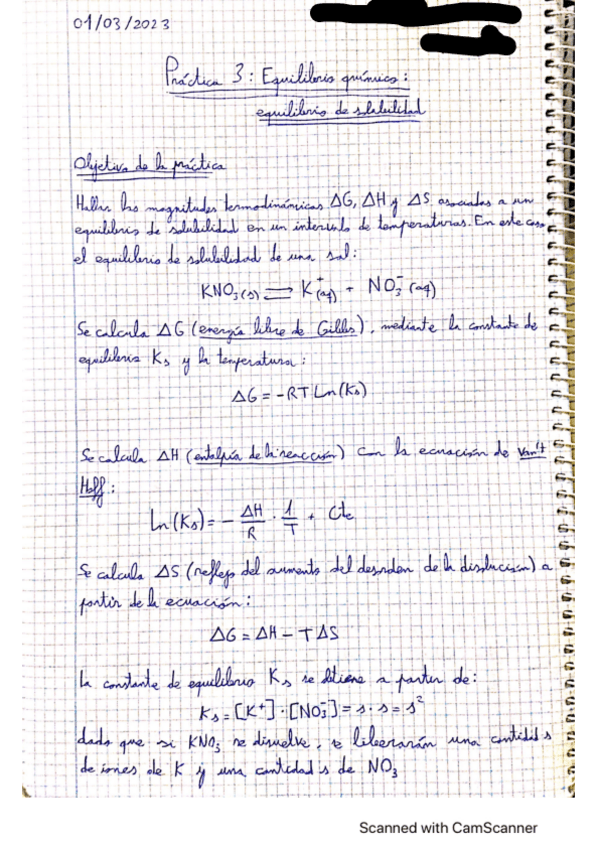 01/03/2023
Práctica 3: Equilibrio químico:
equilibrio de solubilidad
Objetivo de la práctica
Hallar las magnitudes termodinámicas ΔG, ΔH y ΔS asociadas a un
equilibrio de solubilidad en un intervalo de temperaturas. En este caso
el equilibrio de solubilidad de una sal:
KNO₃(s) ⇌ K⁺(aq) + NO₃⁻(aq)
Se calcula ΔG (energía libre de Gibbs), mediante la constante de
equilibrio Ks y la temperatura:
ΔG = -RT Ln(Ks)
Se calcula ΔH (entalpía de la reacción) con la ecuación de Van't
Hoff:
Ln(Ks) = - ΔH/R · 1/T + Cte
Se calcula ΔS (reflejo del aumento del desorden de la disolución) a
partir de la ecuación:
ΔG = ΔH - TΔS
La constante de equilibrio Ks se obtiene a partir de:
Ks = [K⁺] · [NO₃⁻] = s · s = s²
dado que si KNO₃ se disuelve, se liberarán una cantidad s
de iones de K y una cantidad s de NO₃
Scanned with CamScanner